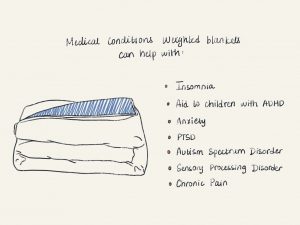 Medical Conditions Weighted blankets
can help with:
• Insomnia
• Aid to children with ADHD
• Anxiety
• PTSD
• Autism Spectrum Disorder
• Sensory Processing Disorder
• Chronic Pain